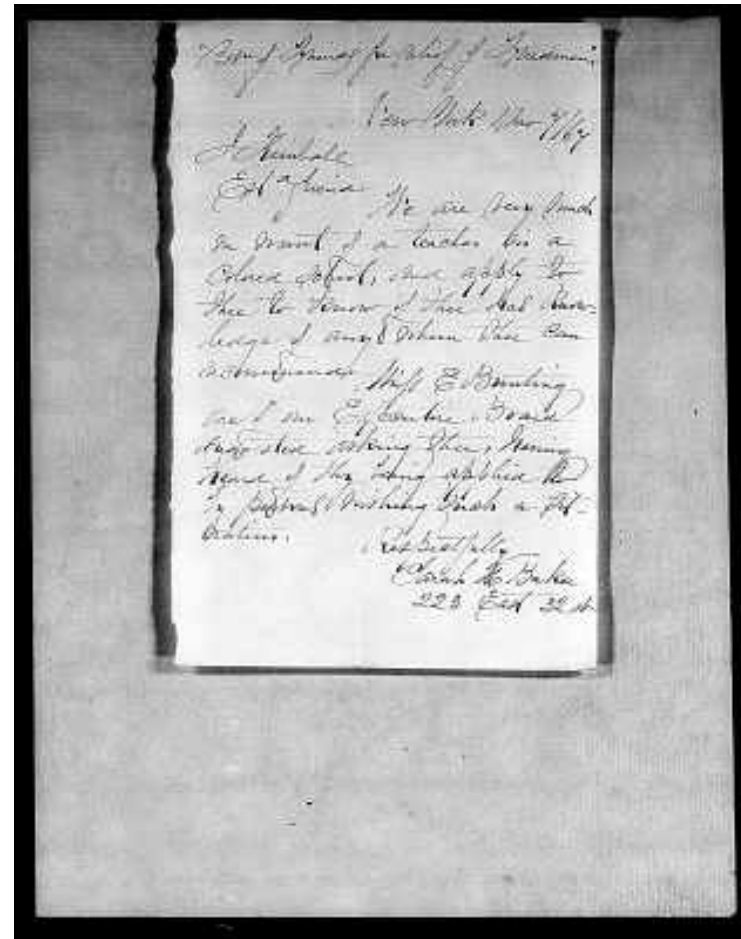 of Friends for relief of Freedmen
New York Nov 4/67
J Kimball
Est'd friend
We are very much
in want of a teacher for a
Colored school, and apply to
thee to know if thee has know-
ledge of any whom thee can
recommend Miss E
one of our Executive Board
asking thee, having
heard of thy being applied to
by persons wishing such a sit-
uation.
Respectfully
Sarah E Baker
223 East 32 st